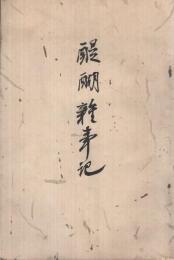 醍醐雑事記